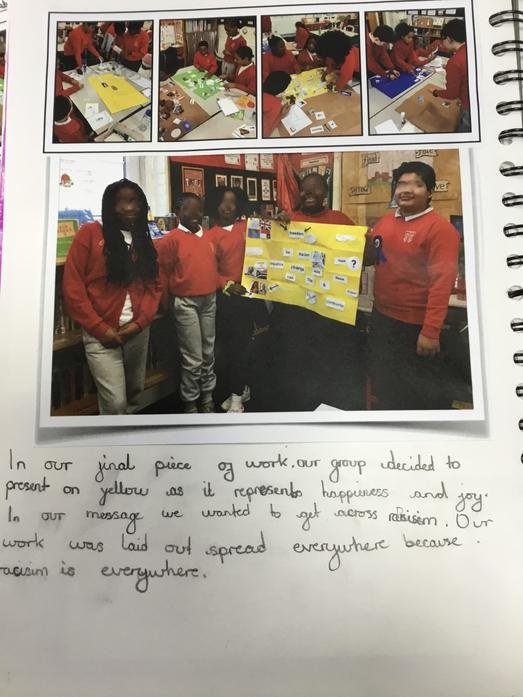 In our final piece of work, our group decided to
present on yellow as it represents happiness and joy.
In our message we wanted to get across racisim. Our
work was laid out spread everywhere because
racisim is everywhere.